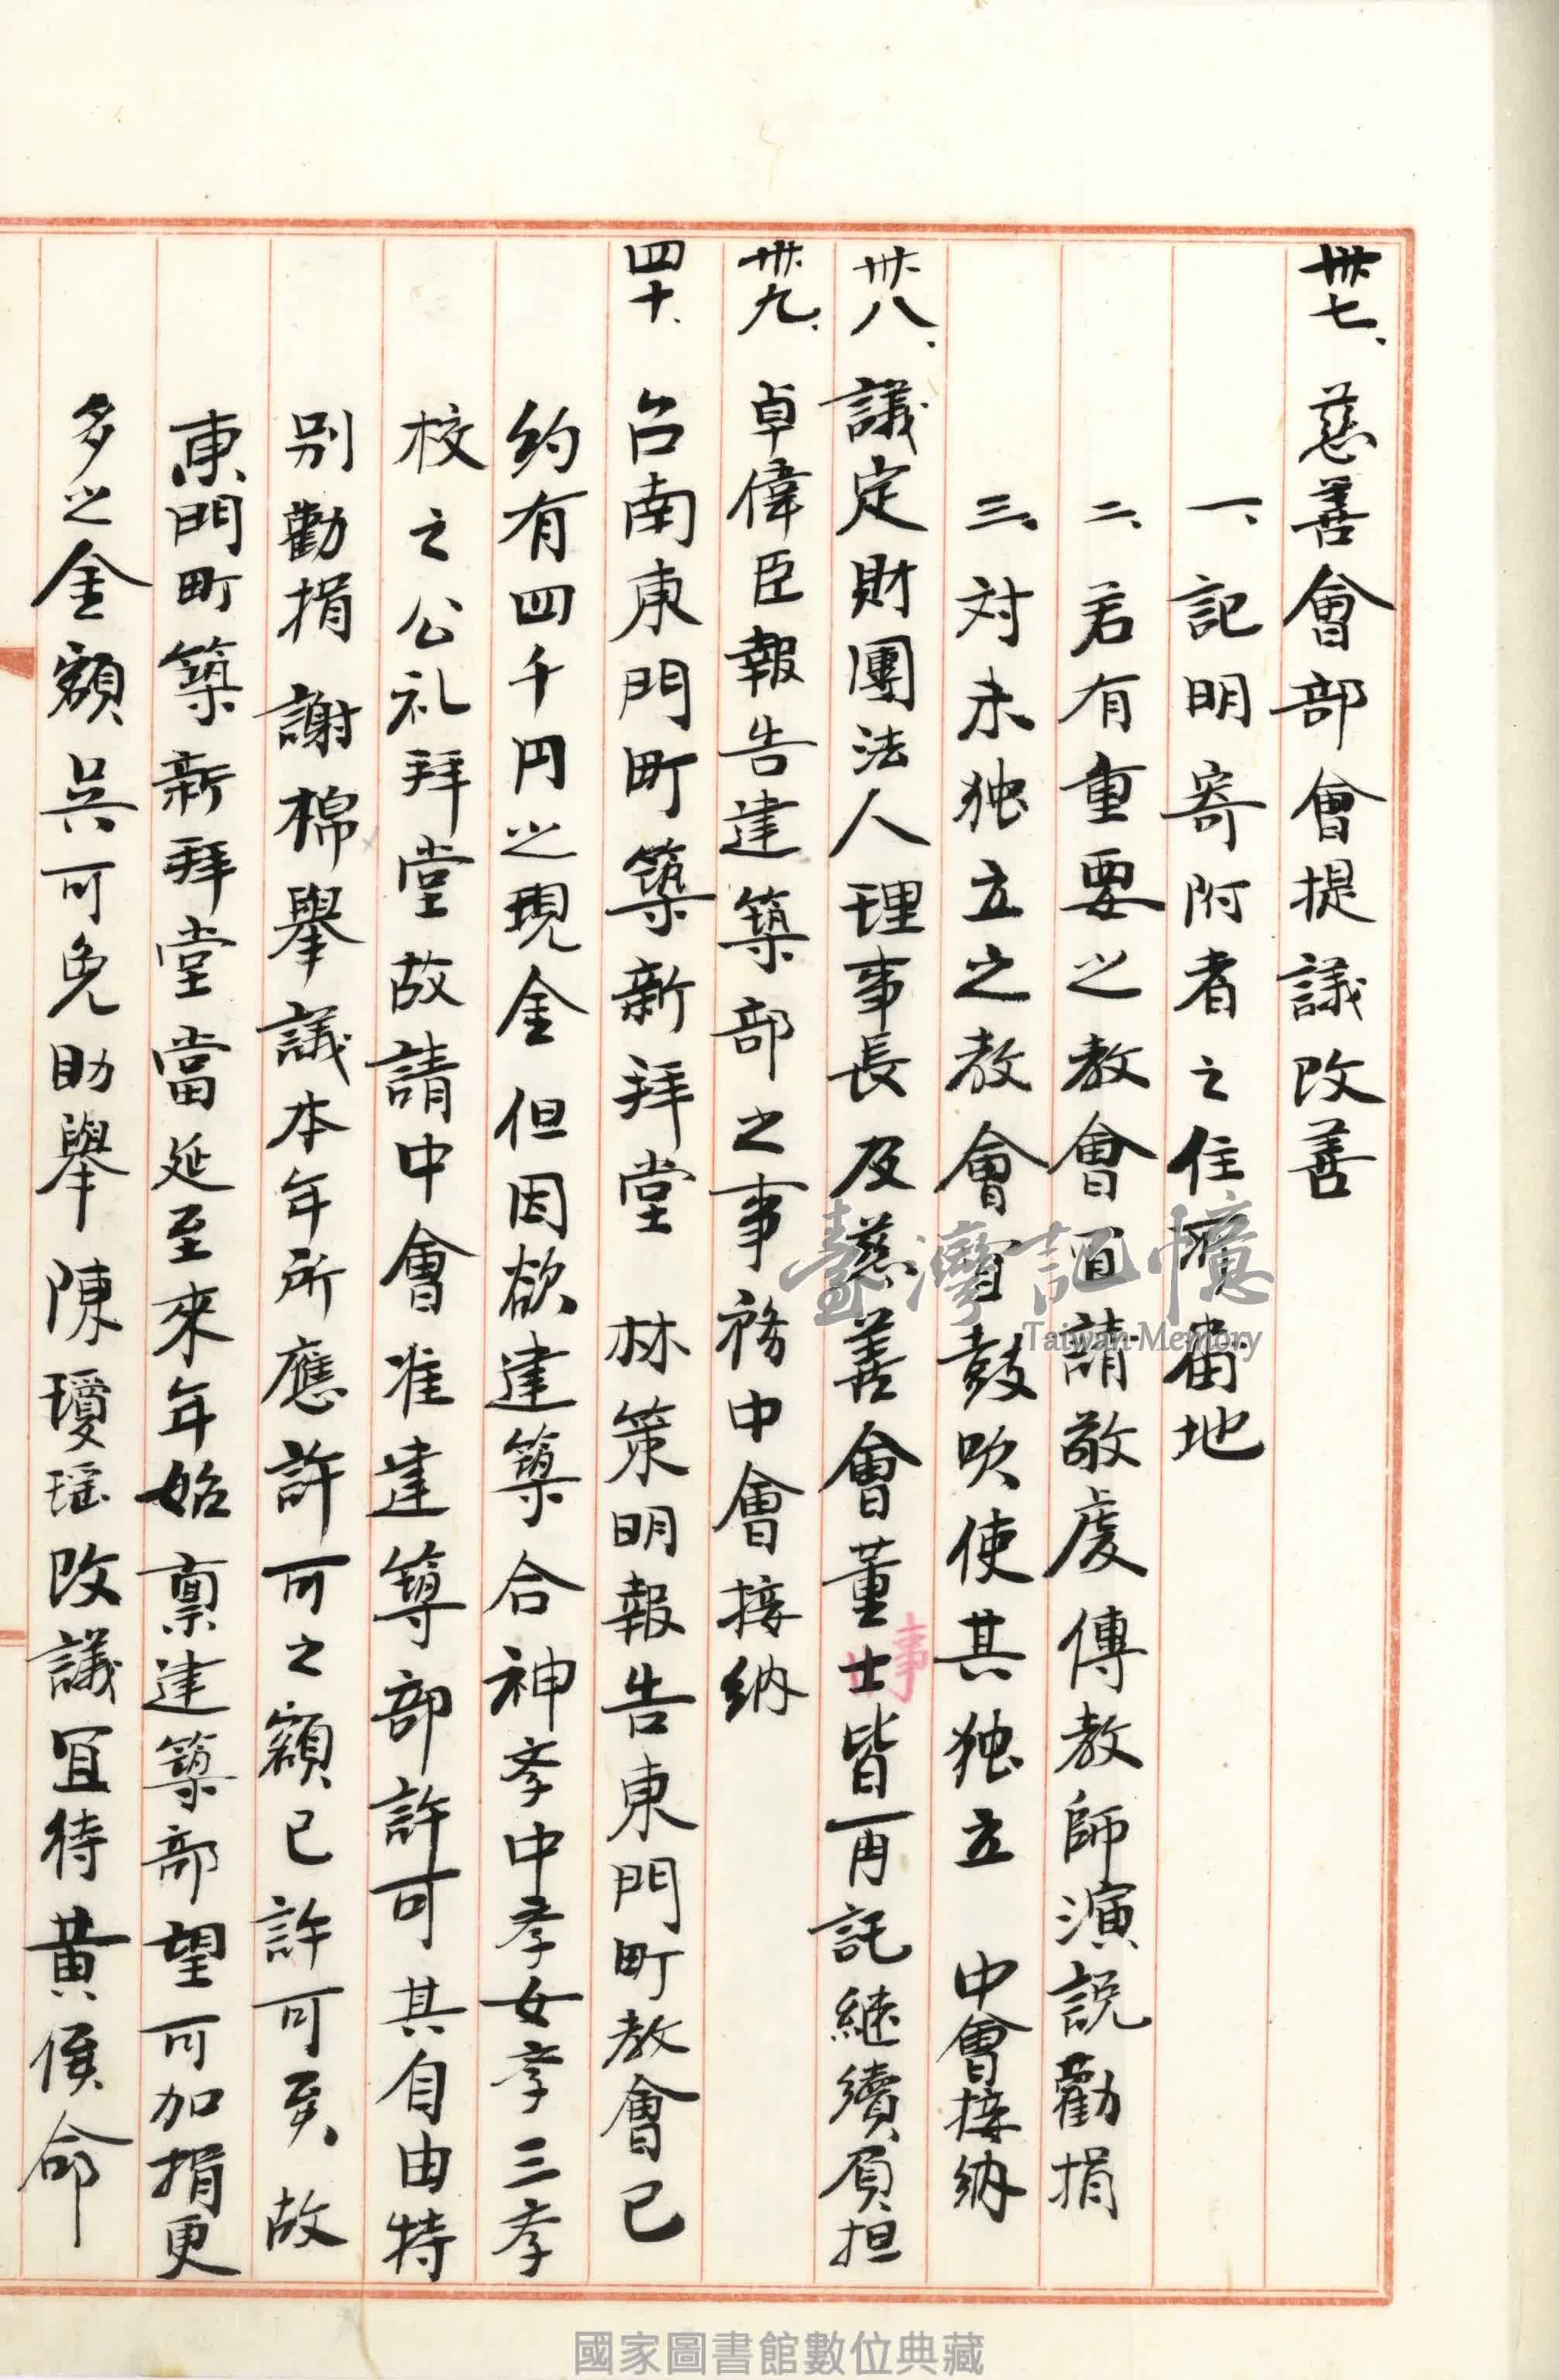 卅七、慈善會部會提議改善
一、記明寄附者之住所番地
二、若有重要之教會宜請敬虔傳教師演説勸捐
三、対未独立之教會宜鼓吹使其独立 中會接納
卅八、議定財團法人理事長及慈善會董士皆再託継續負担
事
卅九、卓偉臣報告建築部之事務中會接納
四十、台南東門町築新拜堂 林策明報告東門町教會已
約有四千円之現金 但因欲建築合神孝中孝女孝三孝
校之公礼拜堂故請中會准建築部許可其自由特
別勸捐 謝棉舉議本年所應許可之額已許可矣 故
東門町築新拜堂當延至來年始稟建築部望可加捐更
多之金額 吳可免助舉 陳瓊瑤改議宜待黃俟命
臺灣記憶
Taiwan Memory
國家圖書館數位典藏